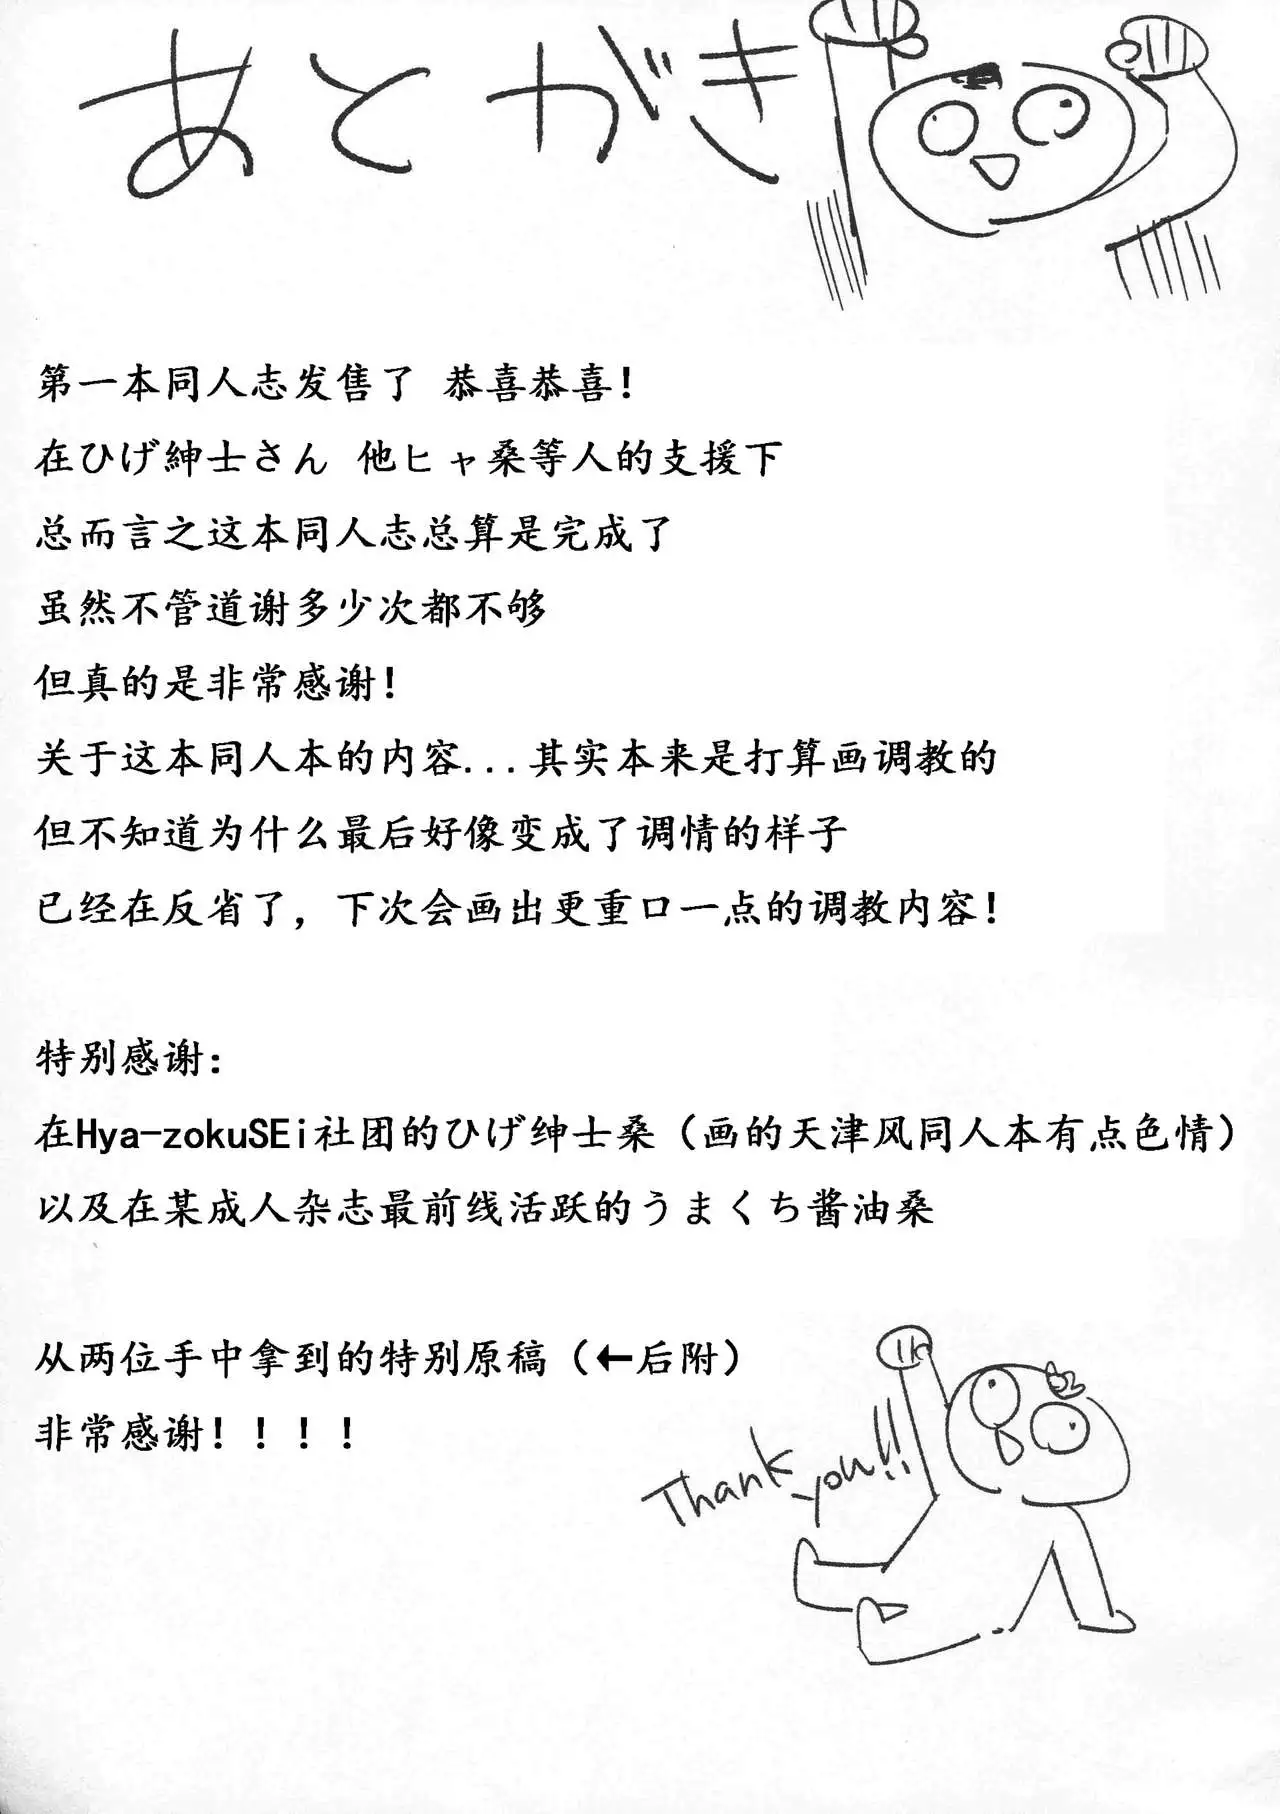 あとがき
第一本同人志发售了 恭喜恭喜！
在ひげ紳士さん 他ヒャ桑等人的支援下
总而言之这本同人志总算是完成了
虽然不管道谢多少次都不够
但真的是非常感谢！
关于这本同人本的内容...其实本来是打算画调教的
但不知道为什么最后好像变成了调情的样子
已经在反省了，下次会画出更重口一点的调教内容！
特别感谢：
在Hya-zokuSEi社团的ひげ绅士桑（画的天津风同人本有点色情）
以及在某成人杂志最前线活跃的うまくち酱油桑
从两位手中拿到的特别原稿（←后附）
非常感谢！！！！
Thank you!!